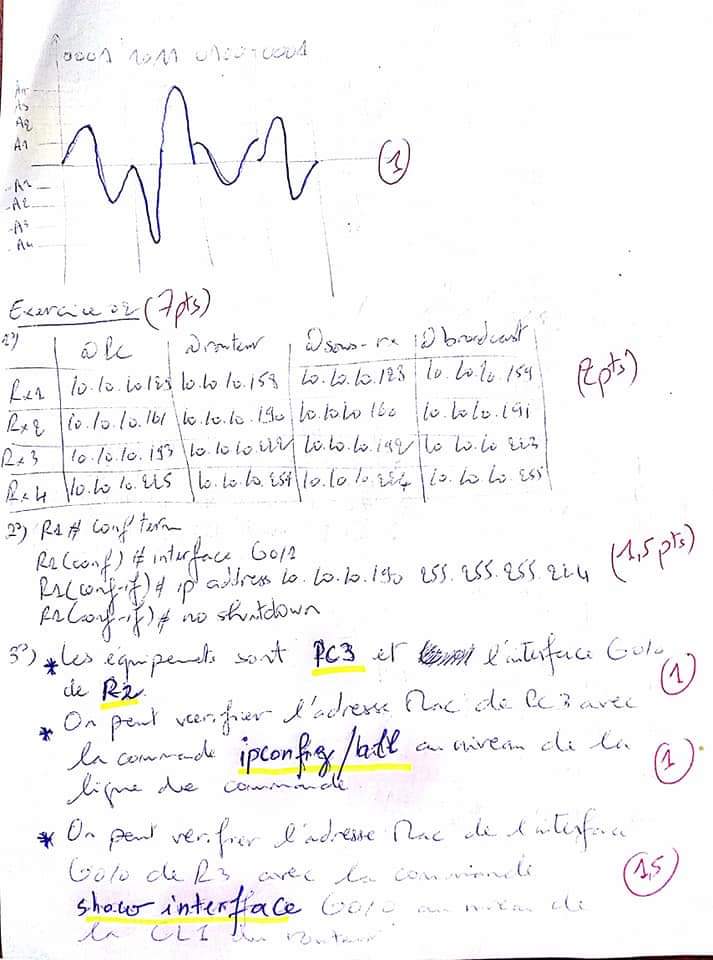 0001 1011 0100 0001
A4
A3
A2
A1
(1)
-A1
-A2
-A3
-A4
Exercice 02 (7pts)
1°)
@Pc @routeur @sous-rx @broadcast
(2pts)
Rx1 10.10.10.129 10.10.10.158 10.10.10.128 10.10.10.159
Rx2 10.10.10.161 10.10.10.190 10.10.10.160 10.10.10.191
Rx3 10.10.10.193 10.10.10.222 10.10.10.192 10.10.10.223
Rx4 10.10.10.225 10.10.10.254 10.10.10.224 10.10.10.255
2°) R1 # conf term
R1(conf) # interface G0/1
R1(conf-if) # ip address 10.10.10.190 255.255.255.224 (1,5pts)
R1(conf-if) # no shutdown
3°) * Les équipements sont PC3 et l'interface G0/0
de R2. (1)
* On peut verifier l'adresse Mac de PC3 avec
la commande ipconfig/all au niveau de la (1)
ligne de commande
* On peut verifier l'adresse Mac de l'interface
G0/0 de R3 avec la commande (1,5)
show interface G0/0 au niveau de
la CLI du routeur